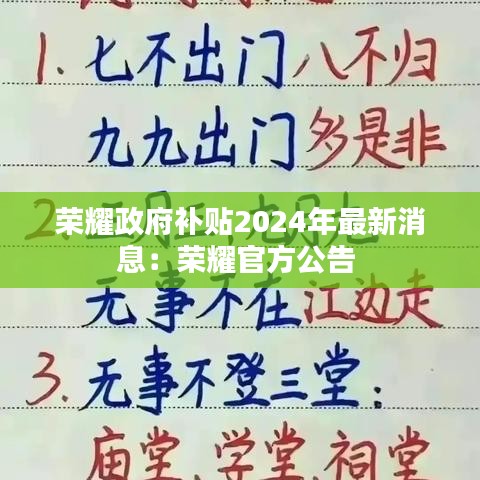 1. 七不出门八不归
九九出门多是非
荣耀政府补贴2024年最新消
息：荣耀官方公告
无事不在江边走
3. 无事不登三堂：
庙堂,学堂,祠堂